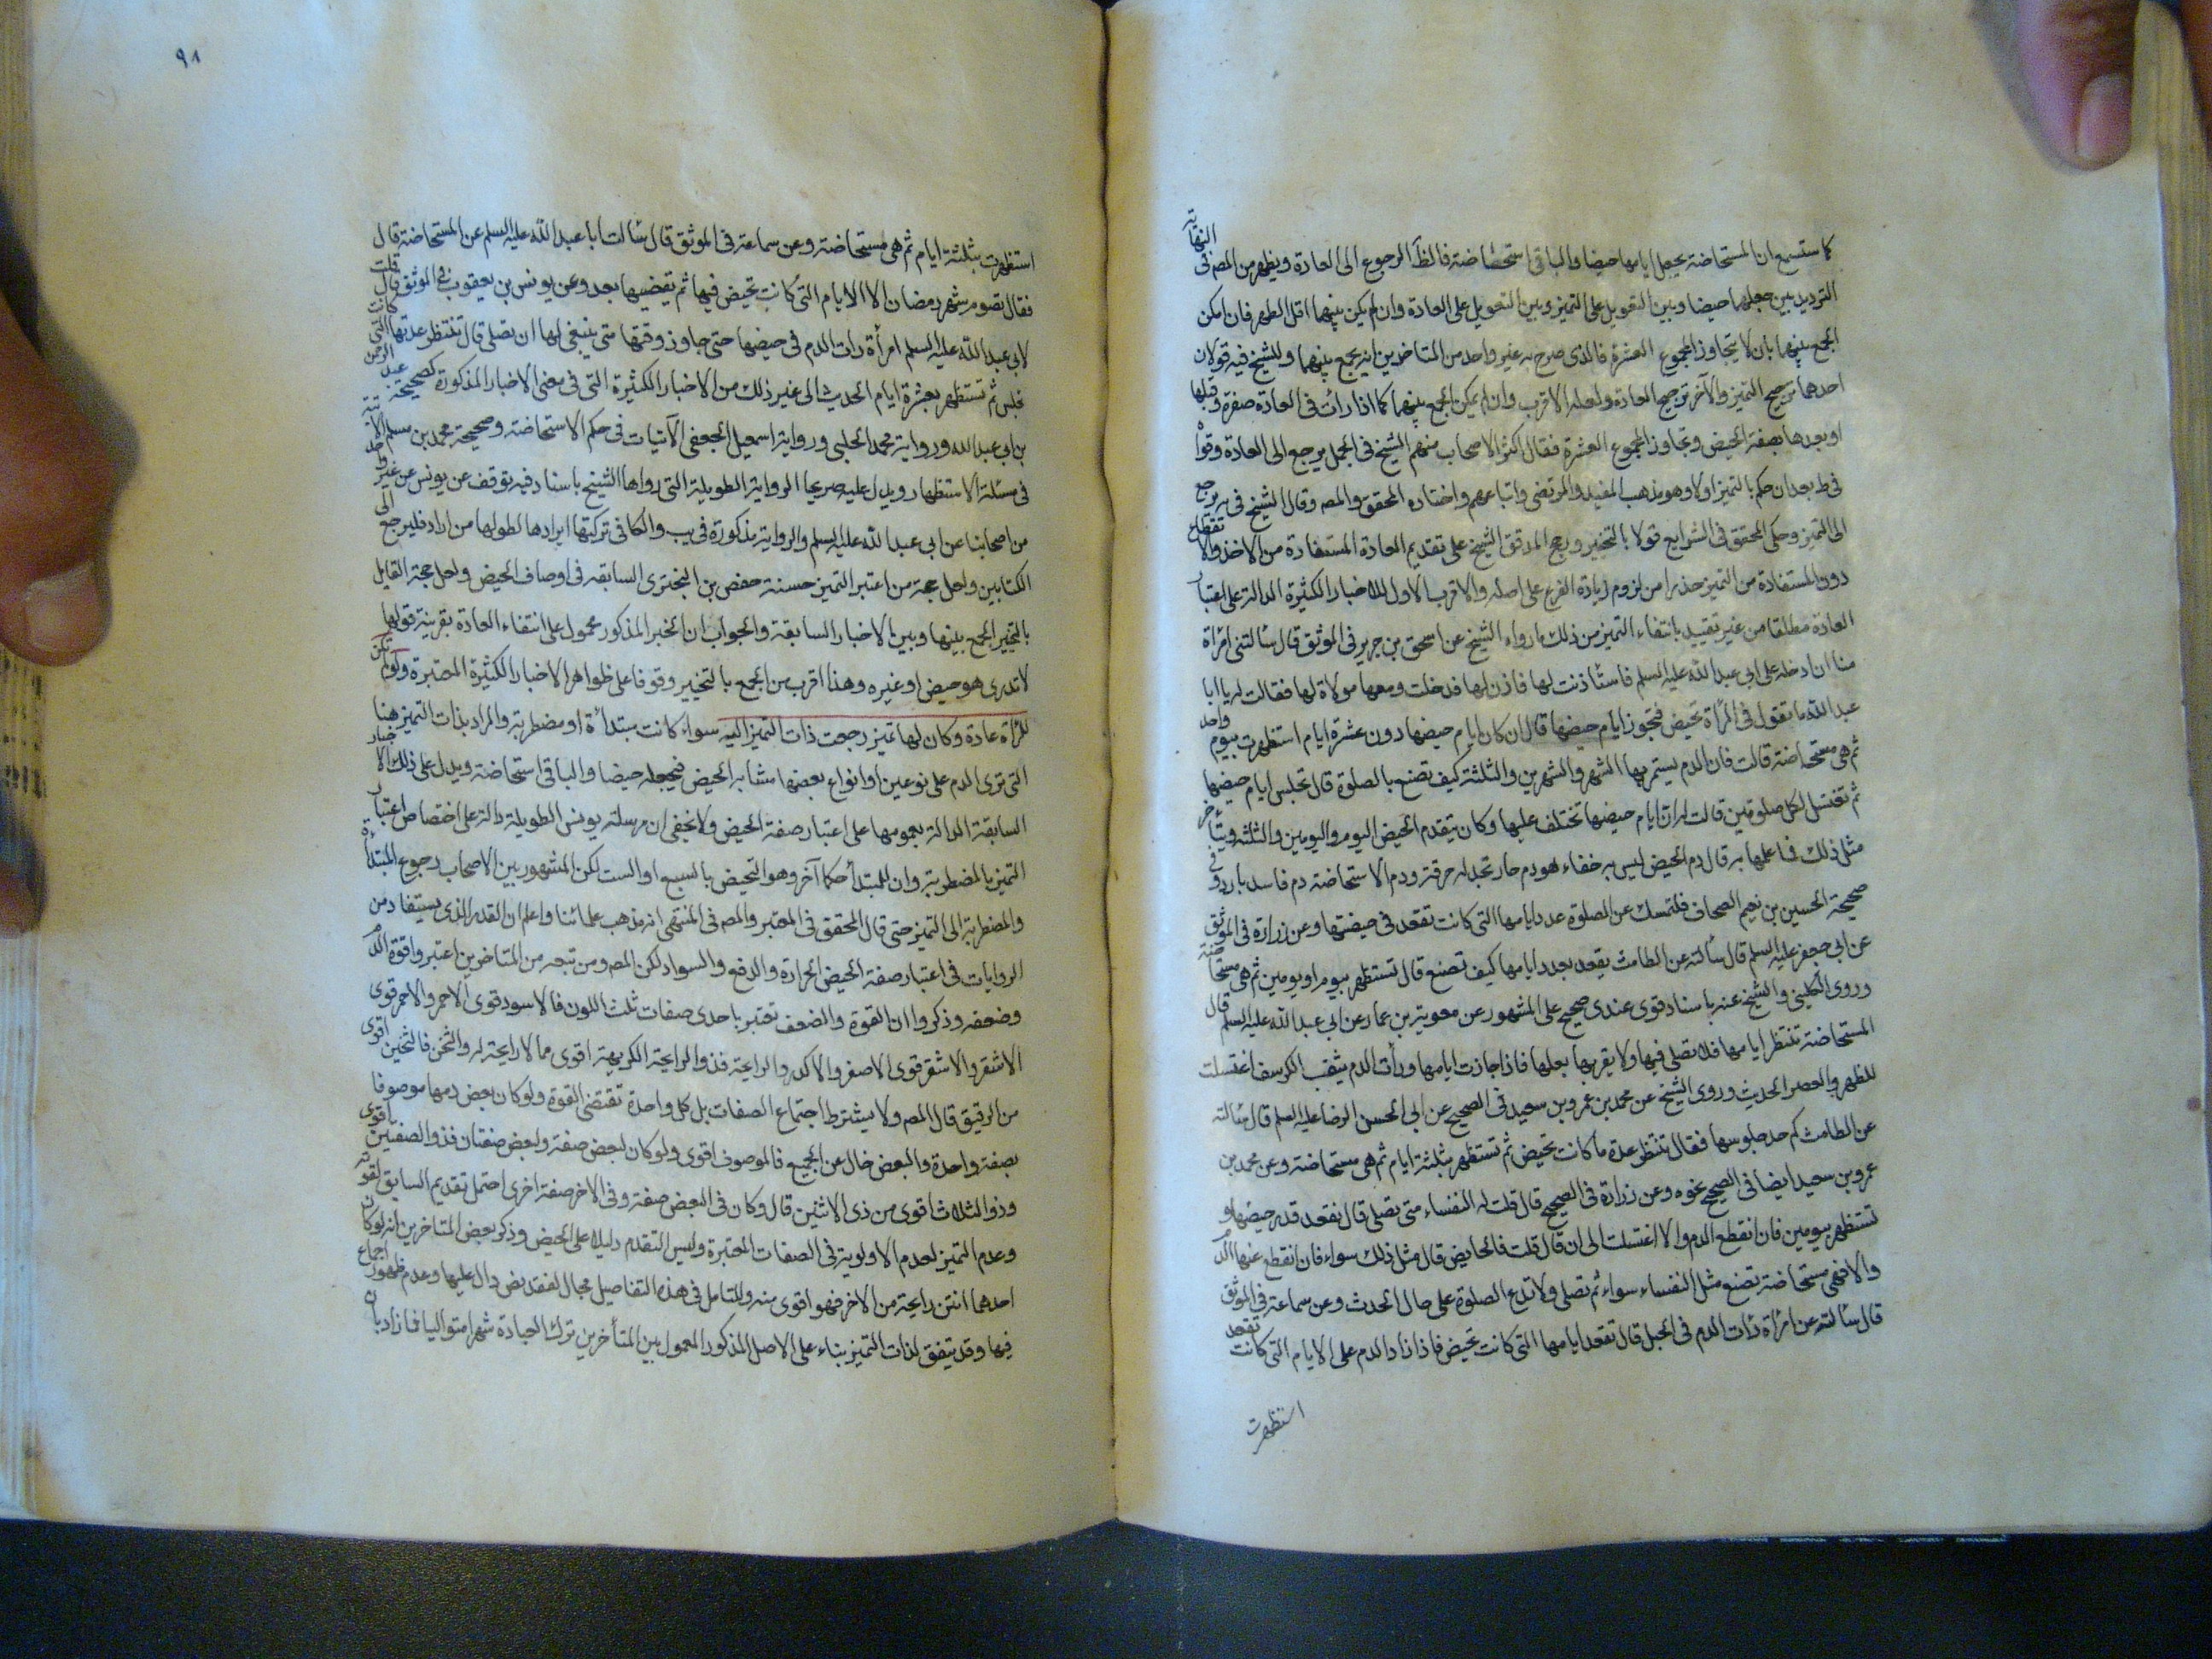 كما ستسمع ان المستحاضة يجعل ايامها حيضا والباقى استحاضة فالظ الرجوع الى العادة ويظهر من المصـ فى النهاية
الترديد بين جعلهما حيضا وبين التعويل على التميز وبين التعويل على العادة وان لم يكن بينهما اقل الطهر فان امكن
الجمع بينهما بان لا يتجاوز المجموع العشرة فالذى صرح به غير واحد من المتاخرين انه يجمع بينهما وللشيخ فيه قولان
احدهما ترجيح التميز والآخر ترجيح العادة ولعله الاقرب وان لم يمكن الجمع بينهما كما اذا رات فى العادة صفرة وقبلها
او بعدها بصفة الحيض وتجاوز المجموع العشرة فقال اكثر الاصحاب منهم الشيخ فى الجمل يرجع الى العادة وقواه
فى ط بعد ان حكم بالتميز اولا وهو مذهب المفيد والمرتضى واتباعهم واختاره المحقق والمصـ وقال الشيخ فى يه يرجع
الى التميز وحكى المحقق فى الشرايع قولا بالتخيير ورجح المدقق الشيخ على تقديم العادة المستفادة من الاخذ والانقطاع
دون المستفادة من التميز حذرا من لزوم زيادة الفرع على اصله والاقرب الاول للاخبار الكثيرة الدالة على اعتبار
العادة مطلقا من غير تقييد بانتفاء التميز من ذلك ما رواه الشيخ عن اسحق بن جرير فى الموثق قال سالتنى امرأة
منا ان ادخلها على ابى عبد الله عليه السلم فاستاذنت لها فاذن لها فدخلت ومعها مولاة لها فقالت له يا ابا
عبد الله ما تقول فى المرأة تحيض فتجوز ايام حيضها قال ان كان ايام حيضها دون عشرة ايام استظهرت بيوم واحد
ثم هى مستحاضة قالت فان الدم يستمر بها الشهر والشهرين والثلثة كيف تصنع بالصلوة قال تجلس ايام حيضها
ثم تغتسل لكل صلوتين قالت له ان ايام حيضها تختلف عليها وكان يتقدم الحيض اليوم واليومين والثلثة ويتأخر
مثل ذلك فما علمها به قال دم الحيض ليس به خفاء هو دم حار تجد له حرقة ودم الاستحاضة دم فاسد بارد وفى
صحيحة الحسين بن نعيم الصحاف فلتمسك عن الصلوة عدد ايامها التى كانت تقعد فى حيضتها وعن زرارة فى الموثق
عن ابى جعفر عليه السلم قال سألته عن الطامث يقعد بعدد ايامها كيف تصنع قال تستظهر بيوم او يومين ثم هى مستحاضة
وروى الكلينى والشيخ عنه باسناد قوى عندى صحيح على المشهور عن معوية بن عمار عن ابى عبد الله عليه السلم قال
المستحاضة تنتظر ايامها فلا تصلى فيها ولا يقربها بعلها فاذا جازت ايامها ورأت الدم يثقب الكرسف اغتسلت
للظهر والعصر الحديث وروى الشيخ عن محمد بن عمرو بن سعيد فى الصحيح عن ابى الحسن الرضا عليه السلم قال سالته
عن الطامث كم حد جلوسها فقال تنتظر عدة ما كانت تحيض ثم تستظهر بثلثة ايام ثم هى مستحاضة وعن محمد بن
عمرو بن سعيد ايضا فى الصحيح نحوه وعن زرارة فى الصحيح قال قلت له النفساء متى تصلى قال تقعد قدر حيضها و
تستظهر بيومين فان انقطع الدم والا اغتسلت الى ان قال قلت فالحايض قال مثل ذلك سواء فان انقطع عنها الدم
والا فهى مستحاضة تصنع مثل النفساء سواء ثم تصلى ولا تدع الصلوة على حال الحديث وعن سماعة فى الموثق
قال سألته عن امرأة رأت الدم فى الحبل قال تقعد ايامها التى كانت تحيض فاذا زاد الدم على الايام التى كانت تقعد
استظهرت
٩٨
استظهرت بثلثة ايام ثم هى مستحاضة وعن سماعة فى الموثق قال سألت ابا عبد الله عليه السلم عن المستحاضة قال
فقال تصوم شهر رمضان الا الايام التى كانت تحيض فيها ثم تقضيها بعد وعن يونس بن يعقوب فى الموثق قال قلت
لابى عبد الله عليه السلم امرأة رات الدم فى حيضها حتى جاوز وقتها متى ينبغى لها ان تصلى قال تنتظر عدتها التى كانت
تجلس ثم تستظهر بعشرة ايام الحديث الى غير ذلك من الاخبار الكثيرة التى فى معنى الاخبار المذكورة كصحيحة عبد الرحمن
بن ابى عبد الله ورواية محمد الحلبى ورواية اسمعيل الجعفى الآتيات فى حكم الاستحاضة وصحيحة محمد بن مسلم الآتية
فى مسئلة الاستظهار ويدل عليه صريحا الرواية الطويلة التى رواها الشيخ باسناد فيه توقف عن يونس عن غير واحد
من اصحابنا عن ابى عبد الله عليه السلم والرواية مذكورة فى يب والكافى تركتها ايرادها لطولها من اراد فليرجع الى
الكتابين ولعل حجة من اعتبر التميز حسنة حفص بن البخترى السابقه فى اوصاف الحيض ولعل حجة القايل
بالتخيير الجمع بينها وبين الاخبار السابقة والجواب ان الخبر المذكور محمول على انتفاء العادة بقرينة قولها
لا تدرى هو حيض او غيره وهذا اقرب من الجمع بالتخيير وقوفا على ظواهر الاخبار الكثيرة المعتبرة ولو لم تكن
للمرأة عادة وكان لها تميز رجعت ذات التميز اليه سواء كانت مبتدأة او مضطربة والمراد بذات التميز هنا
التى ترى الدم على نوعين او انواع بعضها مشابه الحيض فتجعله حيضا والباقى استحاضة ويدل على ذلك الاخبار
السابقة الدالة بعمومها على اعتبار صفة الحيض ولا يخفى ان مرسلة يونس الطويلة دالة على اختصاص اعتبار
التميز بالمضطربة وان للمبتدأة حكما آخر وهو التحيض بالسبع او الست لكن المشهور بين الاصحاب رجوع المبتدأة
والمضطربة الى التميز حتى قال المحقق فى المعتبر والمصـ فى المنتهى انه مذهب علمائنا واعلم ان القدر الذى يستفاد من
الروايات فى اعتبار صفة الحيض الحرارة والدفع والسواد لكن المصـ ومن تبعه من المتاخرين اعتبروا قوة الدم
وضعفه وذكروا ان القوة والضعف تعتبر باحدى صفات ثلث اللون فالاسود قوى الاحمر والاحمر قوى
الاشقر والاشقر قوى الاصفر والاكدر والرايحة فذو الرايحة الكريهة اقوى مما لا رايحة له والثخن فالثخين اقوى
من الرقيق قال المصـ ولا يشترط اجتماع الصفات بل كل واحدة تقتضى القوة ولو كان بعض دمها موصوفا
بصفة واحدة والبعض خال عن الجميع فالموصوف اقوى ولو كان لبعض صفة ولبعض صفتان فذو الصفتين اقوى
وذو الثلاث اقوى من ذى الاثنين قال وكان فى البعض صفة وفى الاخر صفة اخرى احتمل تقديم السابق لقوته
وعدم التميز لعدم الاولوية فى الصفات المعتبرة وليس التقدم دليلا على الحيض وذكر بعض المتاخرين انه لو كان
احدهما انتن رايحة من الاخر فهو اقوى منه وللتامل فى هذه التفاصيل مجال لفقد نص دال عليها وعدم ظهور اجماع
فيها وقد يتفق لذات التميز بناء على الاصل المذكور المعمول بين المتأخرين ترك العبادة شهرا متواليا فما زاد بان